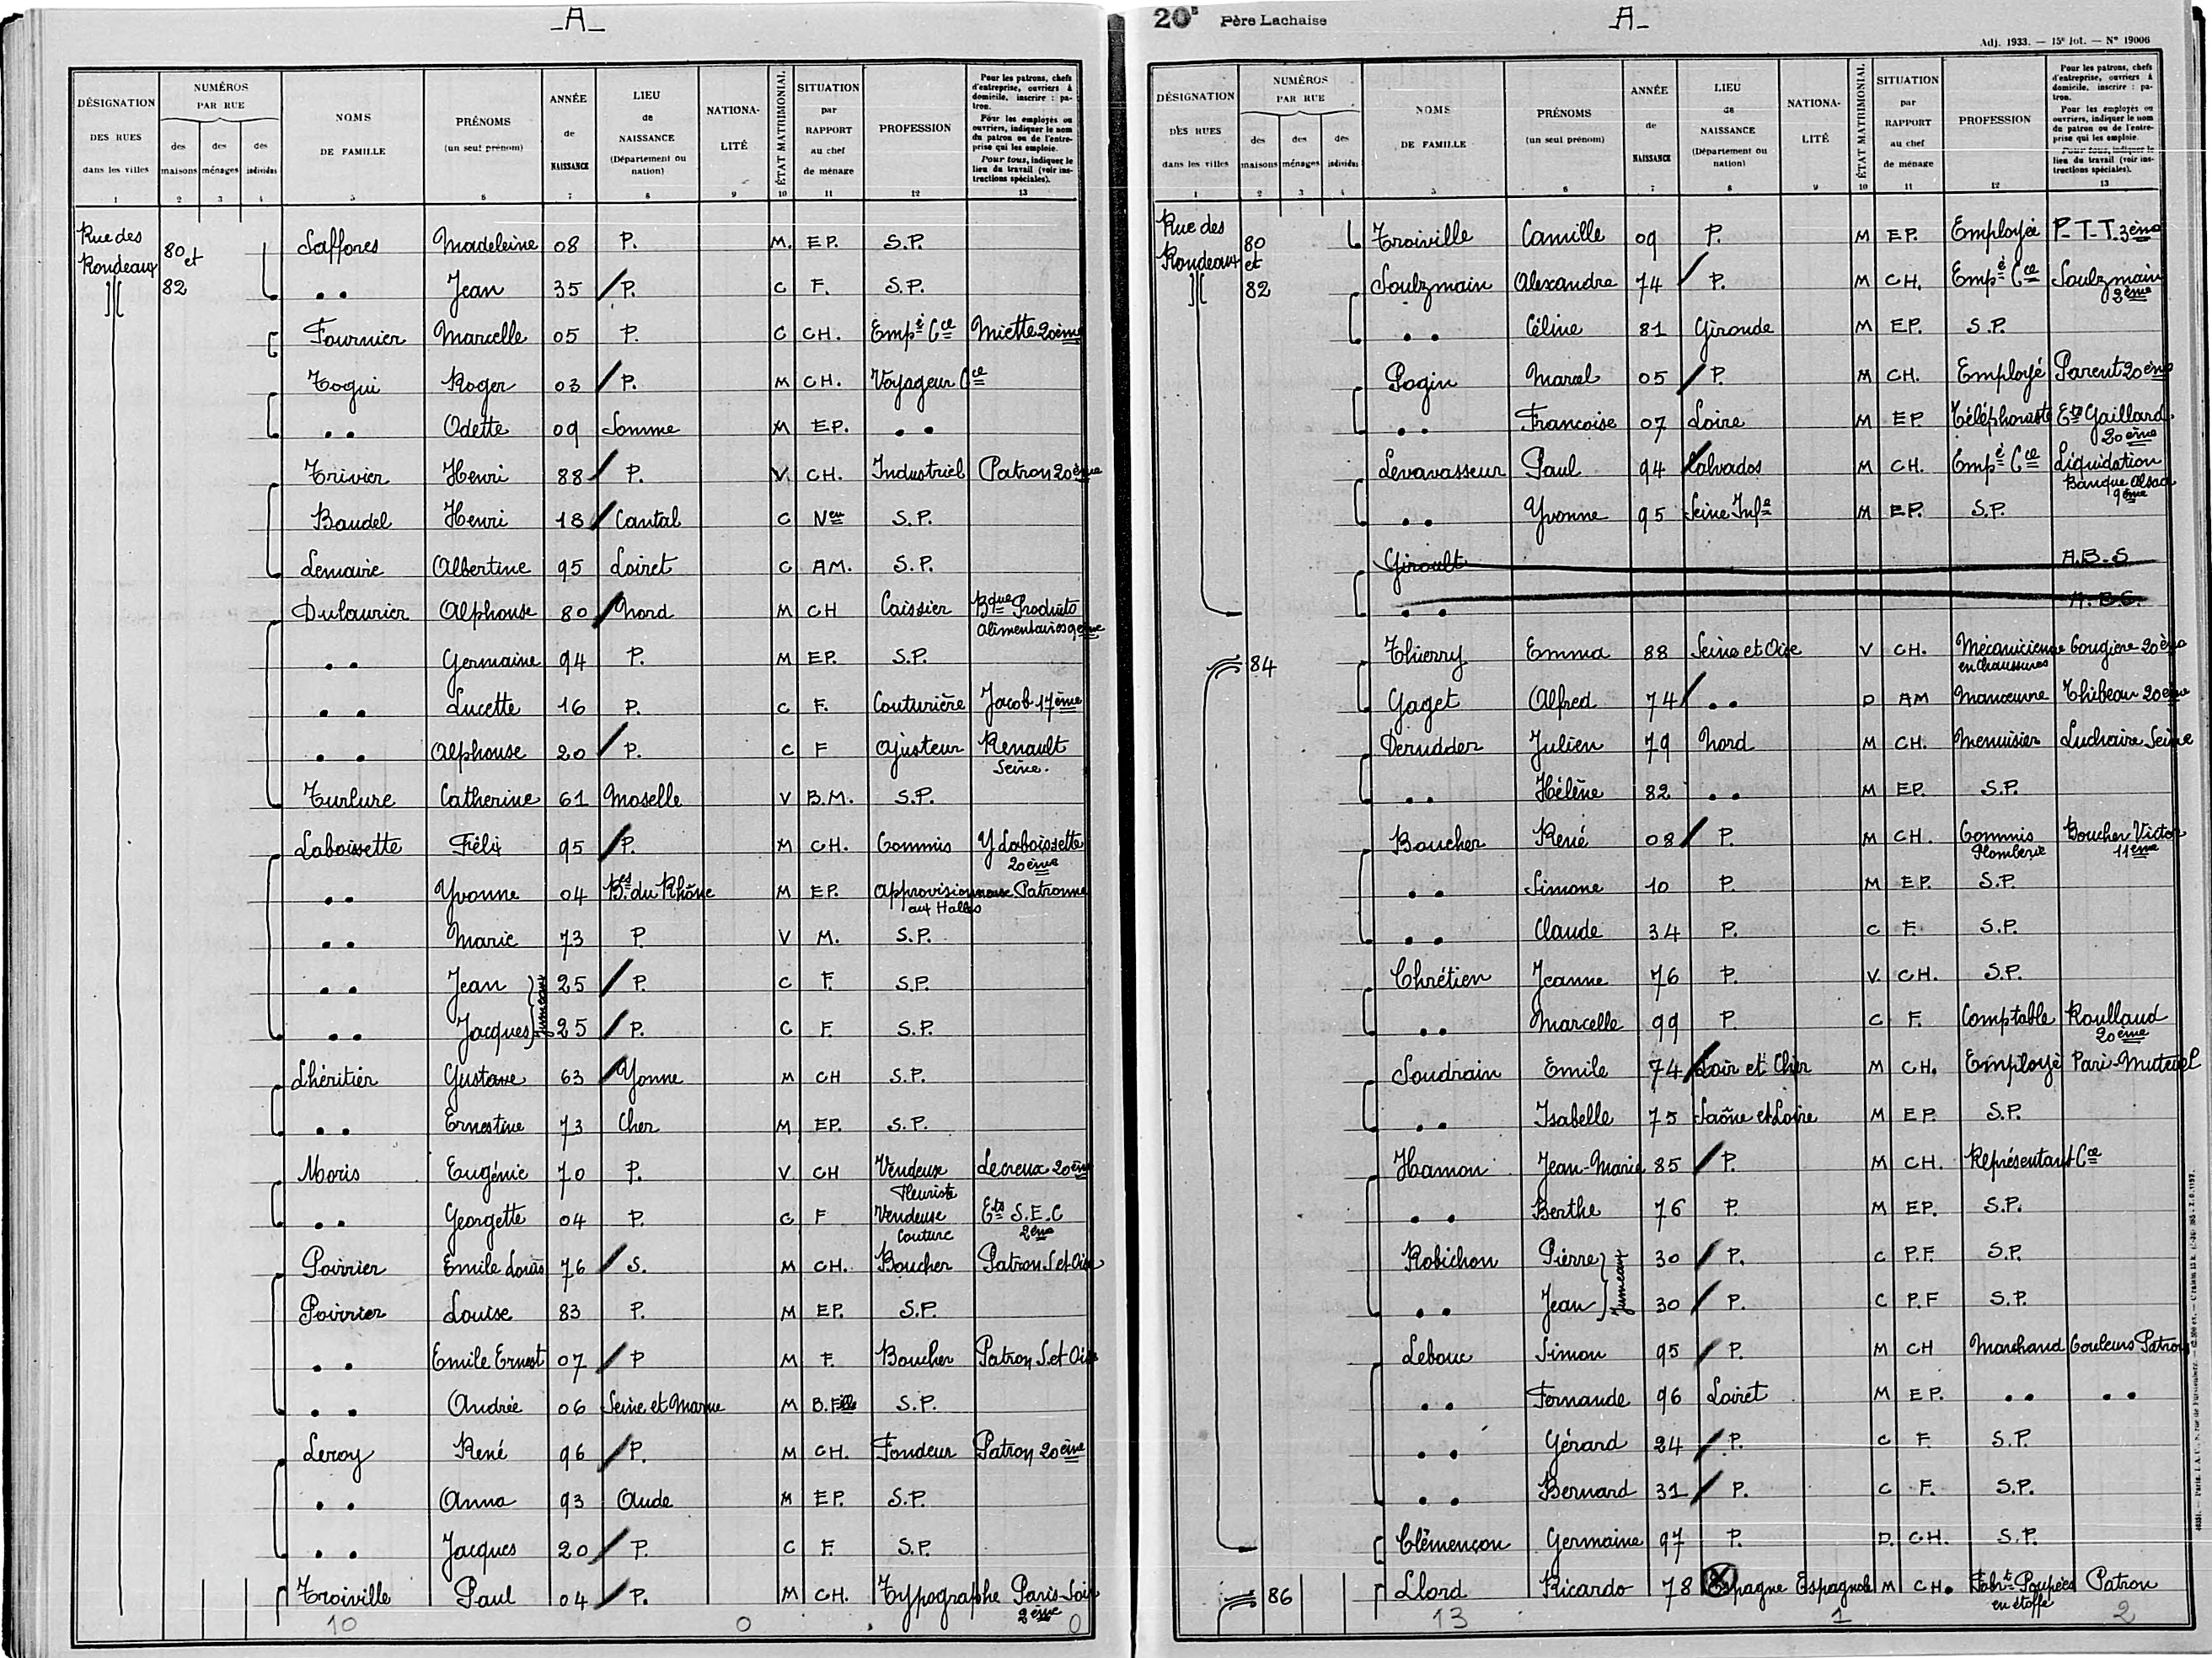 -A-
DÉSIGNATION DES RUES dans les villes 1
NUMÉROS PAR RUE
des maisons 2
des ménages 3
des individus 4
NOMS DE FAMILLE 5
PRÉNOMS (un seul prénom) 6
ANNÉE de NAISSANCE 7
LIEU de NAISSANCE (Département ou nation) 8
NATIONALITÉ 9
ÉTAT MATRIMONIAL 10
SITUATION par RAPPORT au chef de ménage 11
PROFESSION 12
Pour les patrons, chefs d'entreprise, ouvriers à domicile, inscrire : patron.
Pour les employés ou ouvriers, indiquer le nom du patron ou de l'entreprise qui les emploie.
Pour tous, indiquer le lieu du travail (voir instructions spéciales). 13
Rue des Rondeaux 80 et 82
Saffores Madeleine 08 P. M. EP. S.P.
.. Jean 35 P. C F. S.P.
Fournier Marcelle 05 P. C CH. Empé Cce Miette 20ème
Togui Roger 03 P. M CH. Voyageur Cce
.. Odette 09 Somme M EP. ..
Trivier Henri 88 P. V. CH. Industriel Patron 20ème
Baudel Henri 18 Cantal C Neu S.P.
Lemavie Albertine 95 Loiret C AM. S.P.
Dulaurier Alphonse 80 Nord M CH Caissier Bque Produits Alimentaires 9ème
.. Germaine 94 P. M EP. S.P.
.. Lucette 16 P. C F. Couturière Jacob 17ème
.. Alphonse 20 P. C F Ajusteur Renault Seine.
Turlure Catherine 61 Moselle V B.M. S.P.
Laboissette Félix 95 P. M CH. Commis Y Laboissette 20ème
.. Yvonne 04 Bes du Rhône M EP. Approvisionneuse aux Halles Patronne
.. Marie 73 P. V M. S.P.
.. Jean 25 P. C F. S.P.
Jumeaux
.. Jacques 25 P. C F. S.P.
Lhéritier Gustave 63 Yonne M CH S.P.
.. Ernestine 73 Cher M EP. S.P.
Moris Eugénie 70 P. V CH Vendeuse Fleuriste Lecreux 20ème
.. Georgette 04 P. C F Vendeuse Couture Ets S.E.C 2ème
Poirrier Emile Louis 76 S. M CH. Boucher Patron S. et Oise
Poirrier Louise 83 P. M EP. S.P.
.. Emile Ernest 07 P M F. Boucher Patron S. et Oise
.. Andrée 06 Seine et Marne M B.Fille S.P.
Leroy René 96 P. M CH. Fondeur Patron 20ème
.. Anna 93 Aude M EP. S.P.
.. Jacques 20 P. C F. S.P.
Troiville Paul 04 P. M CH. Typographe Paris-Soir 2ème
10 0 0
20E Père Lachaise
-A-
Adj. 1933. — 15e lot. — N° 19006
DÉSIGNATION DES RUES dans les villes 1
NUMÉROS PAR RUE
des maisons 2
des ménages 3
des individus 4
NOMS DE FAMILLE 5
PRÉNOMS (un seul prénom) 6
ANNÉE de NAISSANCE 7
LIEU de NAISSANCE (Département ou nation) 8
NATIONALITÉ 9
ÉTAT MATRIMONIAL 10
SITUATION par RAPPORT au chef de ménage 11
PROFESSION 12
Pour les patrons, chefs d'entreprise, ouvriers à domicile, inscrire : patron.
Pour les employés ou ouvriers, indiquer le nom du patron ou de l'entreprise qui les emploie.
Pour tous, indiquer le lieu du travail (voir instructions spéciales). 13
Rue des Rondeaux 80 et 82
Troiville Camille 09 P. M EP. Employée P-T-T. 3ème
Soulzmain Alexandre 74 P. M CH. Empé Cce Soulzmain 2ème
.. Céline 81 Gironde M EP. S.P.
Pagin Marcel 05 P. M CH. Employé Parent 20ème
.. Francoise 07 Loire M EP. Téléphoniste Ets Gaillard 20ème
Levavasseur Paul 94 Calvados M CH. Empé Cce Liquidation Banque Alsac 9ème
.. Yvonne 95 Seine Infre M EP. S.P.
Girault A.B.S
.. A.B.S.
84 Thierry Emma 88 Seine et Oise V CH. Mécanicienne en chaussures Gougiere 20ème
Gaget Alfred 74 .. D AM Manœuvre Thibeau 20ème
Derudder Julien 79 Nord M CH. Menuisier Luchaire Seine
.. Hélène 82 .. M EP. S.P.
Boucher René 08 P. M CH. Commis Plomberie Boucher Victor 11ème
.. Simone 10 P. M EP. S.P.
.. Claude 34 P. C F. S.P.
Chrétien Jeanne 76 P. V. CH. S.P.
.. Marcelle 99 P. C F. Comptable Roullaud 20ème
Soudrain Emile 74 Loir et Cher M CH. Employé Pari-Mutuel
.. Isabelle 75 Saône et Loire M EP. S.P.
Hamon Jean-Marie 85 P. M CH. Représentant Cce
.. Berthe 76 P. M EP. S.P.
Robichon Pierre 30 P. C P.F. S.P.
Jumeaux
.. Jean 30 P. C P.F S.P.
Lebouc Simon 95 P. M CH Marchand Couleurs Patron
.. Fernande 96 Loiret M EP. .. ..
.. Gérard 24 P. C F. S.P.
.. Bernard 31 P. C F. S.P.
Clémençon Germaine 97 P. D. CH. S.P.
86 Llord Ricardo 78 Espagne Espagnole M CH. Fabt Poupées en étoffe Patron
13 1 2